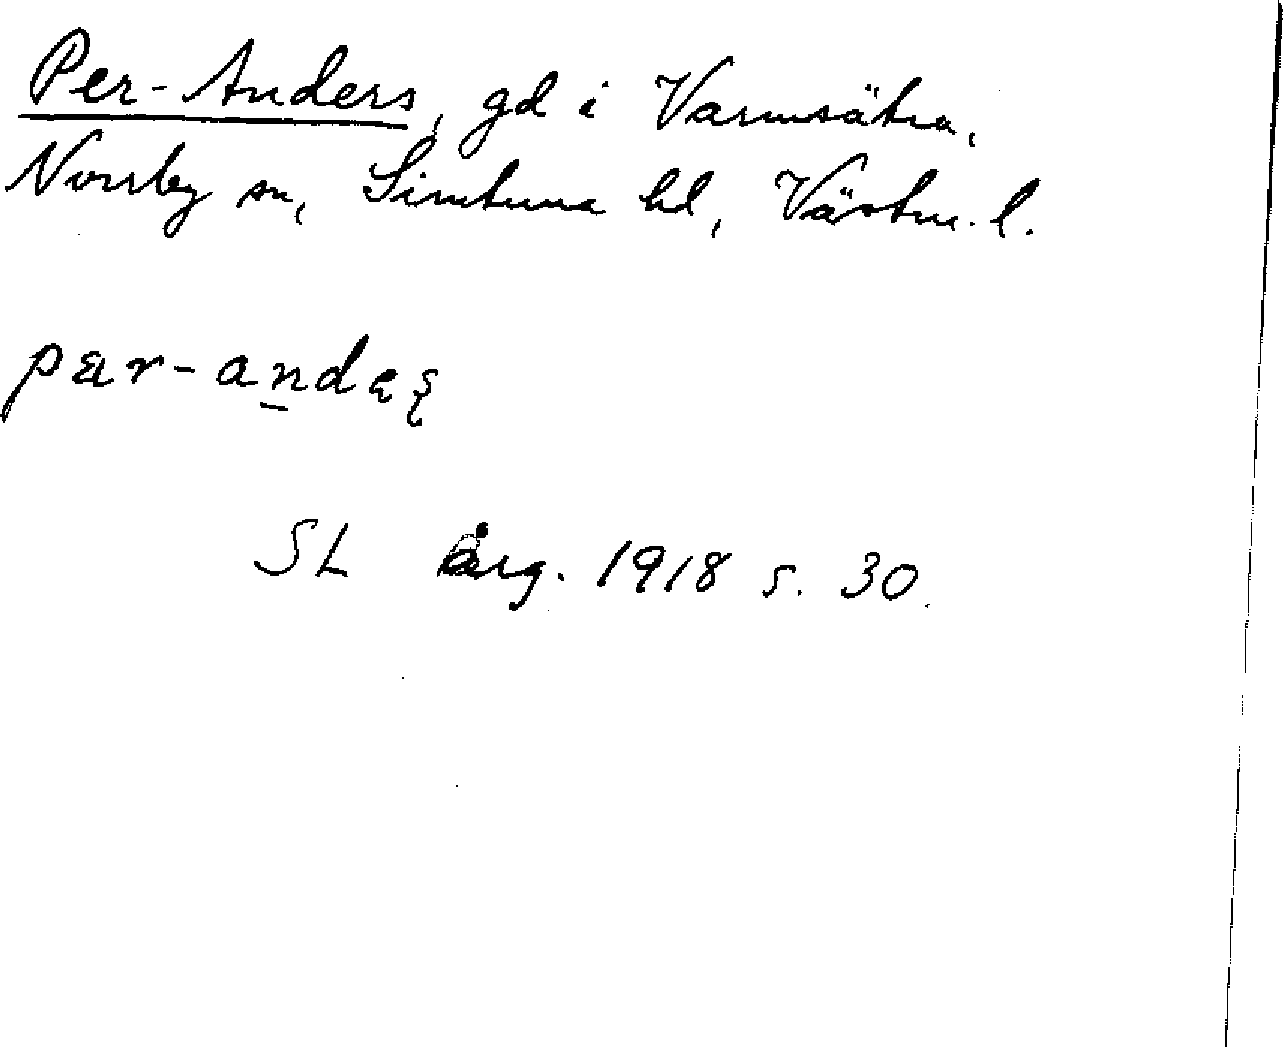 Per-Anders, gd i Varmsätra,
Norrby sn, Simtuna hd, Västm. l.
pær-andęʂ
SL årg. 1918 s. 30.